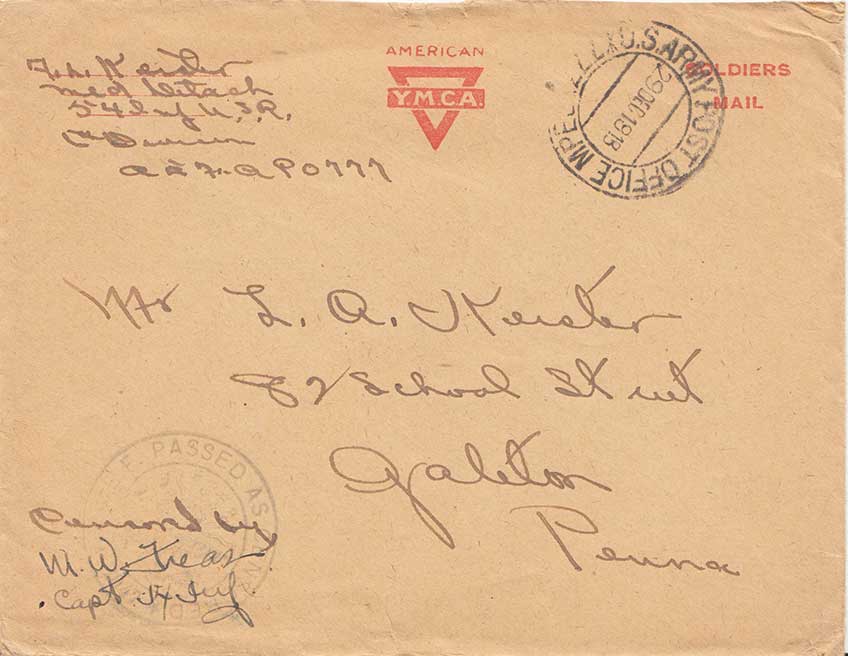 F. L. Keister
Med Detach
54 Inf U.S.R.
6th Division
A E F. A P O 777
AMERICAN
Y.M.C.A.
SOLDIERS
MAIL
U.S. ARMY POST OFFICE M.P.E.S.
29 DEC 1918
Mr L. A. Keister
82 School Street
Galeton
Penna
PASSED AS
Censored by
M. W.
Capt 54 Inf